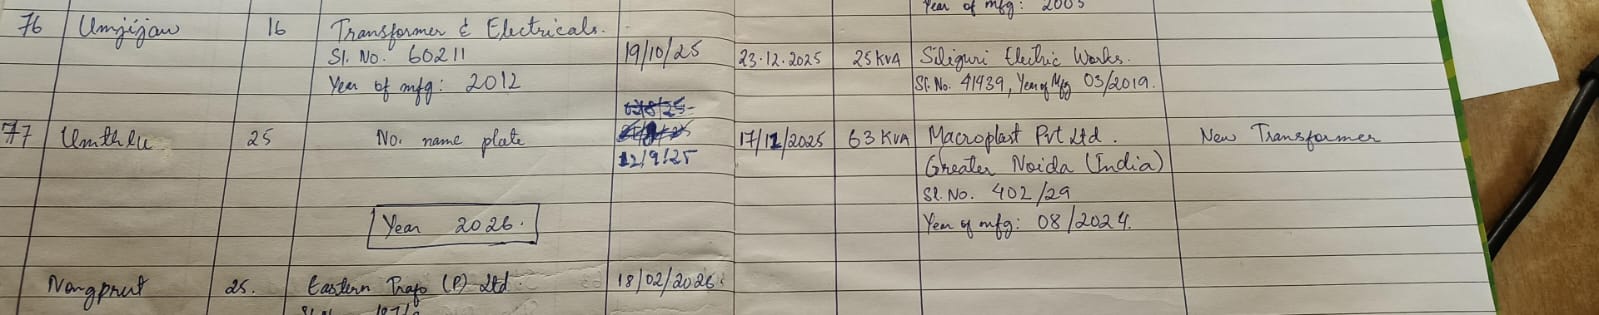 Year of mfg: 2005
76 Umjijaw 16 Transformer & Electricals.
Sl. No. 60211 19/10/25 23.12.2025 25KVA Siliguri Electric Works.
Year of mfg: 2012 Sl. No. 41939, Year of Mfg 03/2019.
77 Umthlu 25 No. name plate 17/12/2025 63 KVA Macroplast Pvt Ltd. New Transformer
12/9/25 Greater Noida (India)
Sl. No. 402/29
Year 2026. Year of mfg: 08/2024.
25. Eastern Trafo (P) Ltd. 18/02/2026